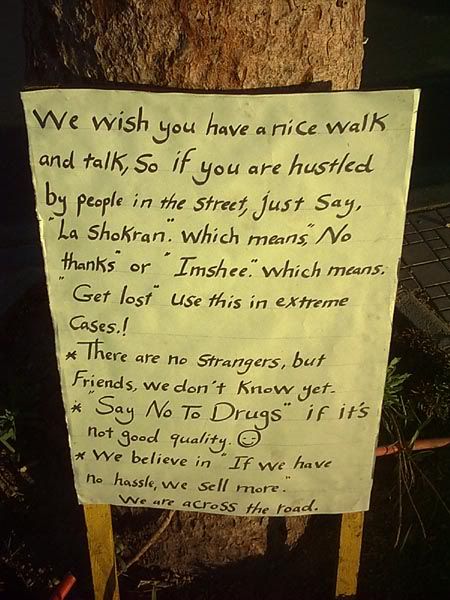 We wish you have a nice walk
and talk, So if you are hustled
by people in the street, just say,
"La Shokran". which means, "No
thanks" or "Imshee". which means.
"Get lost" use this in extreme
Cases.!
* There are no strangers, but
Friends, we don't know yet.
* "Say No To Drugs" if it's
not good quality. ☺
* We believe in "If we have
no hassle, we sell more."
We are across the road.